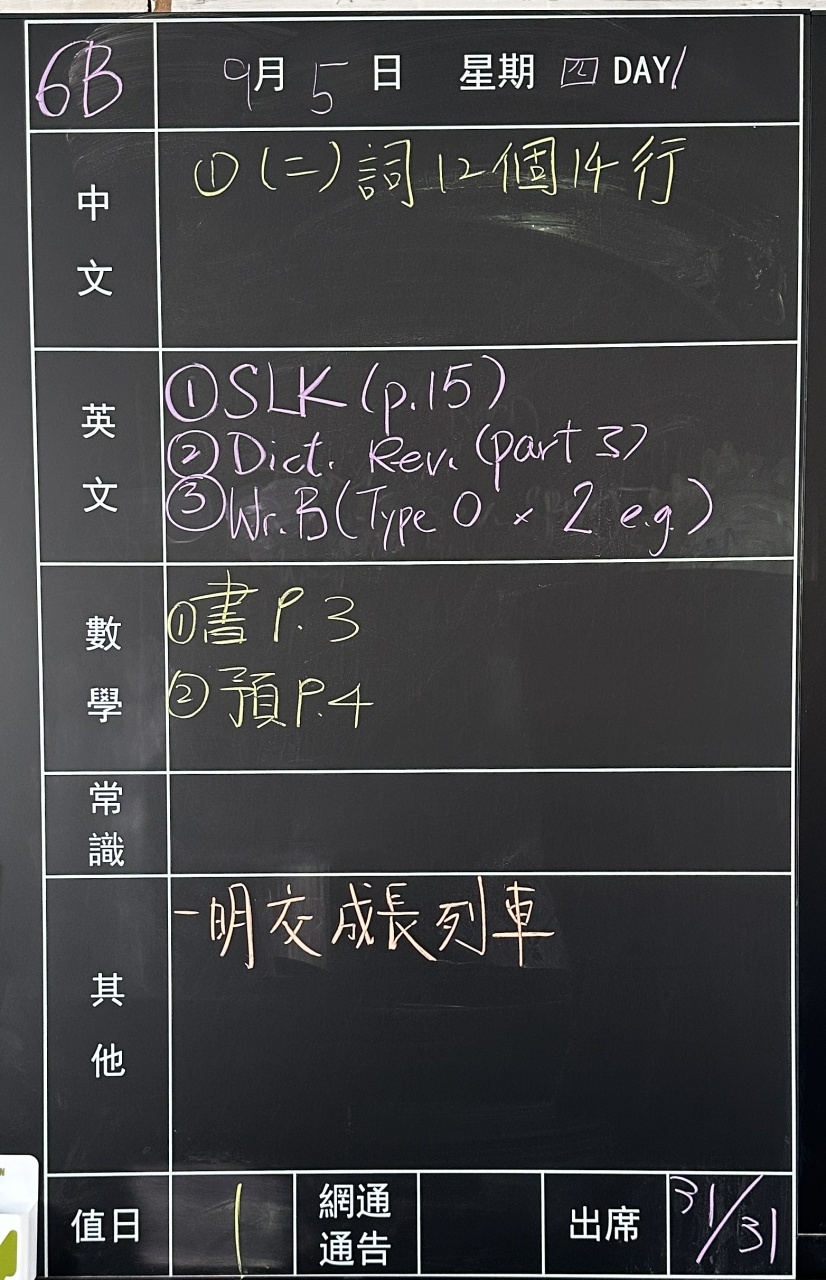 6B 9月5日 星期四 DAY1
中文
①(二)詞12個14行
英文
①SLK (p.15)
②Dict. Rev. (part 3)
③Wr.B (Type 0 × 2 e.g.)
數學
①書P.3
②預P.4
常識
其他
-明交成長列車
值日 1 網通通告 出席 31/31